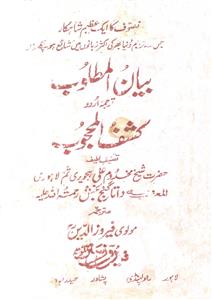 تصوف کا ایک عظیم شاہکار
جس کے تراجم دنیا بھر کی اکثر زبانوں میں شائع ہو چکے ہیں
بیان المطلوب
ترجمہ اردو
کشف المحجوب
تصنیف لطیف
حضرت شیخ مخدوم علی ہجویری ثم لاہوری
المعروف داتا گنج بخش رحمتہ اللہ علیہ
مترجمہ
مولوی فیروز الدین
فیروز سنز
لاہور راولپنڈی پشاور حیدرآباد